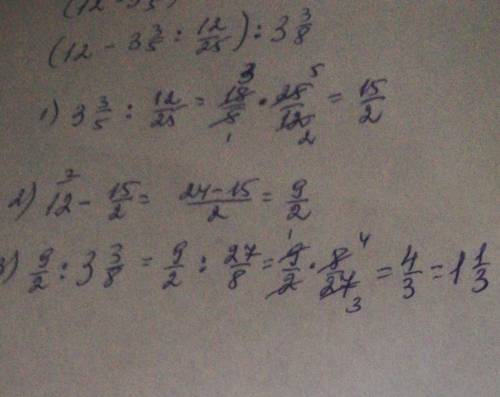 (12 - 3 3/5
(12 - 3 3/5 : 12/25) : 3 3/8
1) 3 3/5 : 12/25 = 18/5 · 25/12 = 15/2
2) 12 - 15/2 = 24-15/2 = 9/2
3) 9/2 : 3 3/8 = 9/2 : 27/8 = 9/2 · 8/27 = 4/3 = 1 1/3